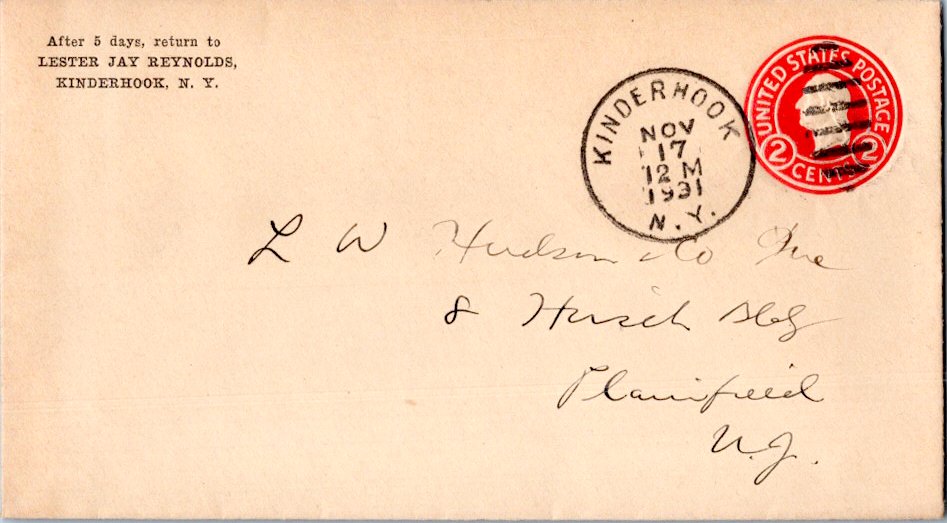 After 5 days, return to
LESTER JAY REYNOLDS,
KINDERHOOK, N. Y.
KINDERHOOK
NOV
17
12 M
1931
N.Y.
UNITED STATES POSTAGE
2 CENTS 2
L W Hudson & Co Inc
8 Hirsch Bldg
Plainfield
N.J.